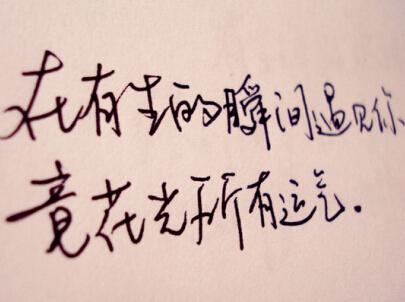 在有生的瞬间遇见你
竟花光所有运气。